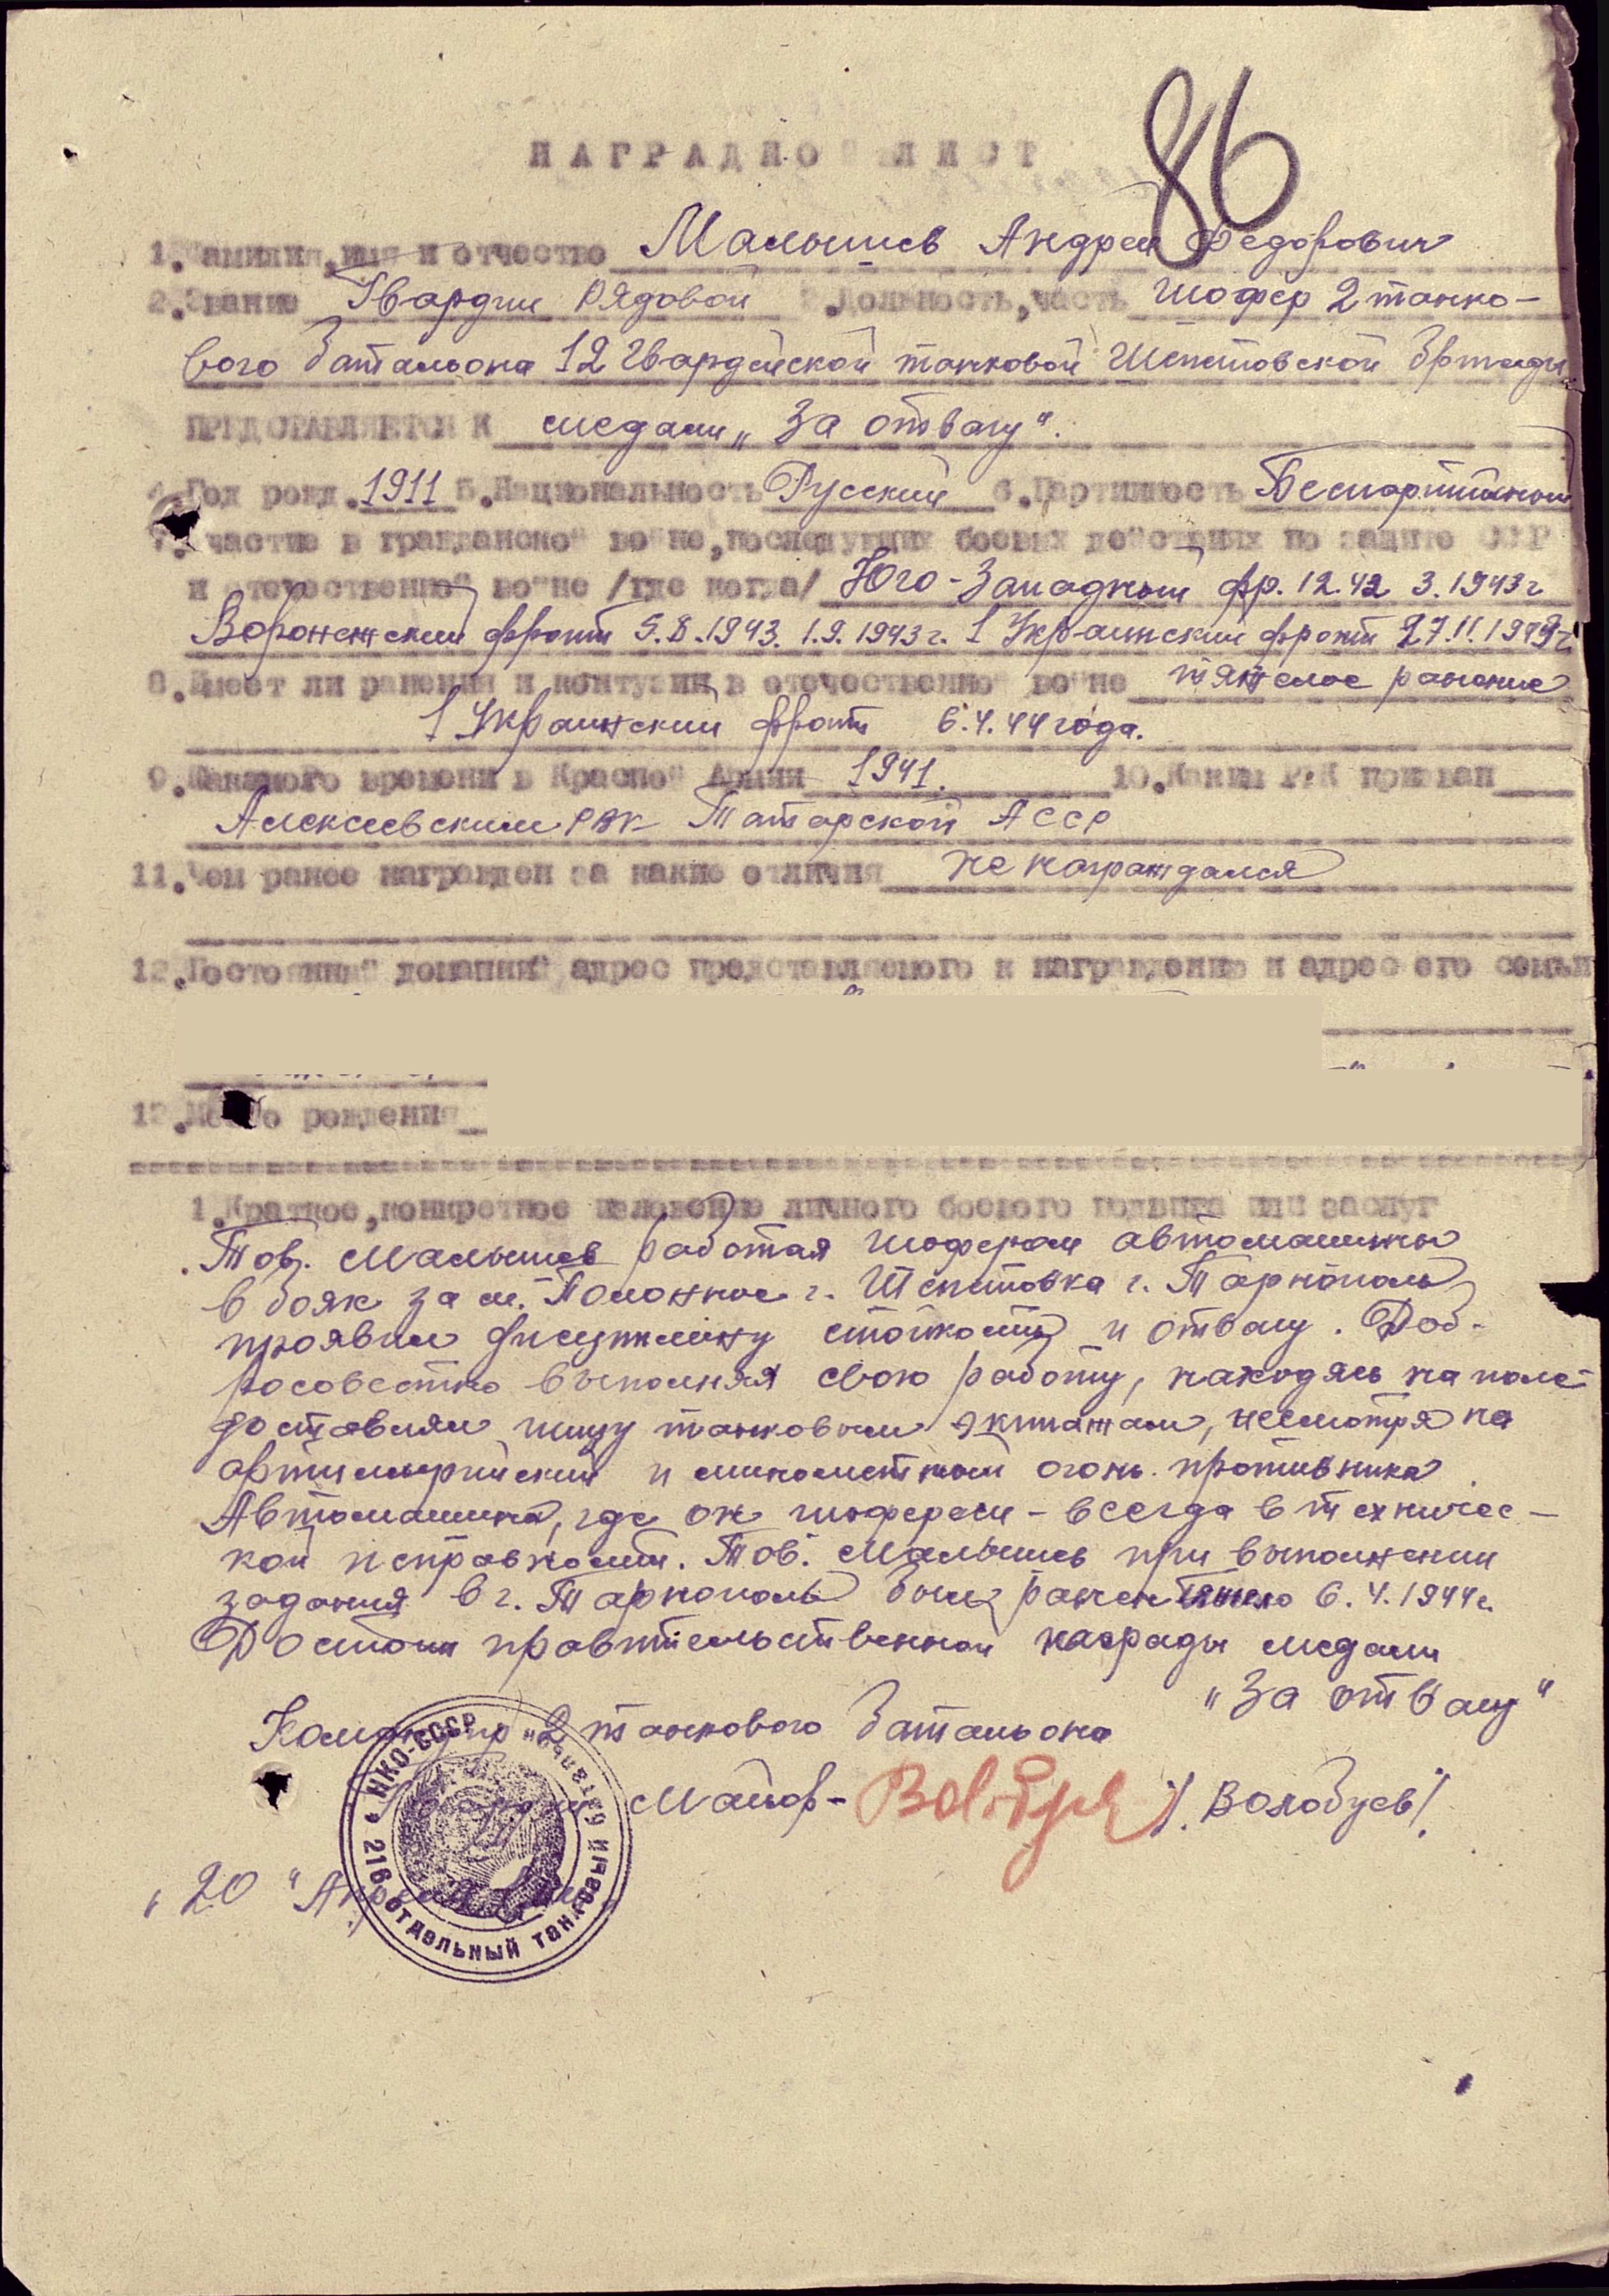 86
НАГРАДНОЙ ЛИСТ
1. Фамилия, имя и отчество Малышев Андрей Федорович
2. Звание Гвардии Рядовой 3. Должность, часть шофер 2 танко-
вого батальона 12 Гвардейской танковой Шепетовской бригады
ПРЕДСТАВЛЯЕТСЯ К медали „За отвагу".
4. Год рожд. 1911 5. Национальность Русский 6. Партийность Беспартийный
7. Участие в гражданской войне, последующих боевых действиях по защите СССР
и отечественной войне /где когда/ Юго-Западный фр. 12.42 3.1943 г
Воронежский фронт 5.8.1943. 1.9.1943 г. 1 Украинский фронт 27.11.1943 г
8. Имеет ли ранения и контузии в отечественной войне тяжелое ранение
1 Украинский фронт 6.4.44 года.
9. С какого времени в Красной Армии 1941. 10. Каким РВК призван
Алексеевским РВК Татарской АССР
11. Чем ранее награжден за какие отличия не награждался
12. Постоянный домашний адрес представляемого к награждению и адрес его семьи
13. Место рождения
1. Краткое, конкретное изложение личного боевого подвига или заслуг
Тов. Малышев работая шофером автомашины
в боях за м. Полонное г. Шепетовка г. Тарнополь
проявил дисциплину стойкость и отвагу. Доб-
росовестно выполняя свою работу, находясь на поле
доставлял пищу танковым экипажам, несмотря на
артиллерийский и минометный огонь противника
Автомашина, где он шофером - всегда в техничес-
кой исправности. Тов. Малышев при выполнении
задания в г. Тарнополь был ранен тяжело 6.4.1944 г.
Достоин правительственной награды медали
„За отвагу"
Командир 2 танкового батальона
Гвардии Майор - /Волобуев/.
„20" Апреля
НКО-СССР
216 отдельный танковый батальон